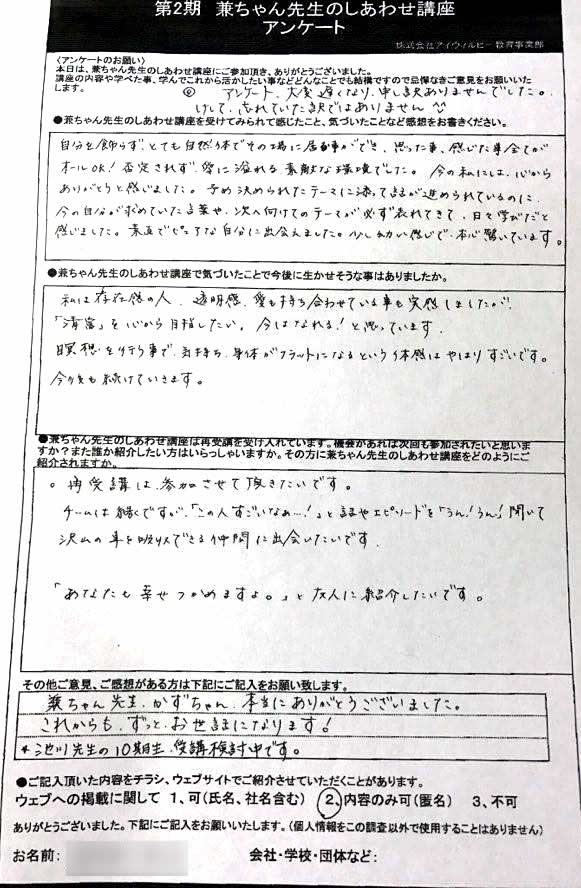 第2期　兼ちゃん先生のしあわせ講座
アンケート
株式会社アイウィルビー教育事業部
〈アンケートのお願い〉
本日は、兼ちゃん先生のしあわせ講座にご参加頂き、ありがとうございました。
講座の内容や学べた事、学んでこれから活かしたい事などどんなことでも結構ですので忌憚なきご意見をお願いいた
します。
◎ アンケート、大変遅くなり、申し訳ありませんでした。
けして、忘れていた訳ではありません
●兼ちゃん先生のしあわせ講座を受けてみられて感じたこと、気づいたことなど感想をお書きください。
自分を飾らず、とても自然体でその場に居る事ができ、思った事、感じた事全てが
オールOK！否定されず愛に溢れる素敵な環境でした。今の私には、心から
ありがとうと感じました。予め決められたテーマに添って話が進められているのに、
今の自分が求めていた言葉や、次へ向けてのテーマが必ず表れてきて、日々学びだと
感じました。素直でピュアな自分に出会えました。少し幼い感じで、本心驚いています。
●兼ちゃん先生のしあわせ講座で気づいたことで今後に生かせそうな事はありましたか。
私は存在感の人、透明感、愛も持ち合わせている事も実感しましたが、
「清富」を心から目指したい。今はなれる！と思っています。
瞑想を行う事で、気持ち、身体がフラットになるという体感はやはりすごいです。
今後も続けていきます。
●兼ちゃん先生のしあわせ講座は再受講を受け入れています。機会があれば次回も参加されたいと思いま
すか？また誰か紹介したい方はいらっしゃいますか。その方に兼ちゃん先生のしあわせ講座をどのようにご
紹介されますか。
○ 再受講は、参加させて頂きたいです。
チームは続くですが、「この人すごいなぁ…！」と話やエピソードを「うん！うん！」聞いて
沢山の事を吸収できる仲間に出会いたいです。
「あなたも幸せつかめますよ。」と友人に紹介したいです。
その他ご意見、ご感想がある方は下記にご記入をお願い致します。
兼ちゃん先生、かずちゃん、本当にありがとうございました。
これからも、ずっと、お世話になります！
* 池川先生の10期生、受講検討中です。
●ご記入頂いた内容をチラシ、ウェブサイトでご紹介させていただくことがあります。
ウェブへの掲載に関して　1、可（氏名、社名含む）　2、内容のみ可（匿名）　3、不可
ありがとうございました。下記にご記入をお願いいたします。（個人情報をこの調査以外で使用することはありません）
お名前：　会社・学校・団体など：